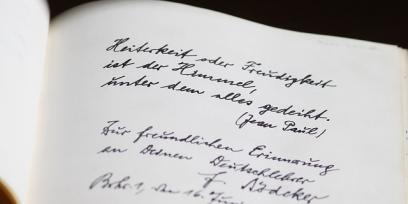 Heiterkeit oder Freudigkeit
ist der Himmel,
unter dem alles gedeiht.
(Jean Paul)
Zur freundlichen Erinnerung
an Deinen Deutschlehrer
F. Rödeker
den 16.